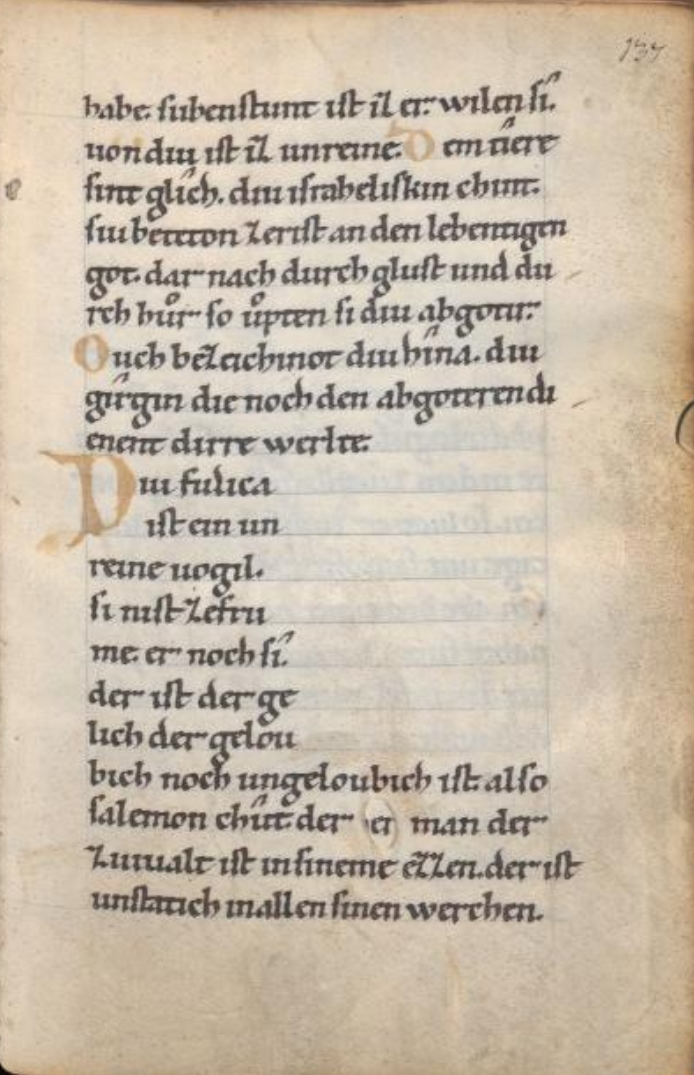 137
habe. subenstunt ist iz er. wilen sî.
uondiu ist iz unreine. Dem tîere
sint glîch. diu israheliskin chint.
siu beteton zerist an den lebentigen
got. dar nach durch glust und du
rch hůr so ůpten si diu abgotir.
Ouch bezeichinot diu hîna. diu
gîrgin die noch den abgoteren di
enent dirre werlte.
Diu fulica
ist ein un
reine uogil.
si nist zefru
me. er noch sî.
der ist der ge
lich der gelou
bich noch ungeloubich ist. also
salemon chût. der er man der
zuiualt ist in sineme ezzen. der ist
unstatich in allen sinen werchen.